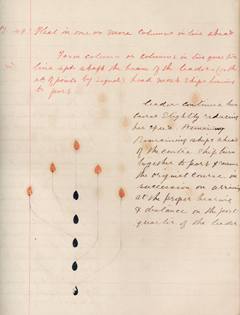 Fleet in one or more columns in line ahead
Form column or columns in line quarter
line abaft the beam of the leader (on the
no. of points by signal) head most ships turning
to port
Leader continues her
course slightly reducing
her speed. Remaining
Remaining ships ahead
of the centre ship turn
together to port & resume
the original course in
succession on arriving
at the proper bearing
& distance on the port
quarter of the leader